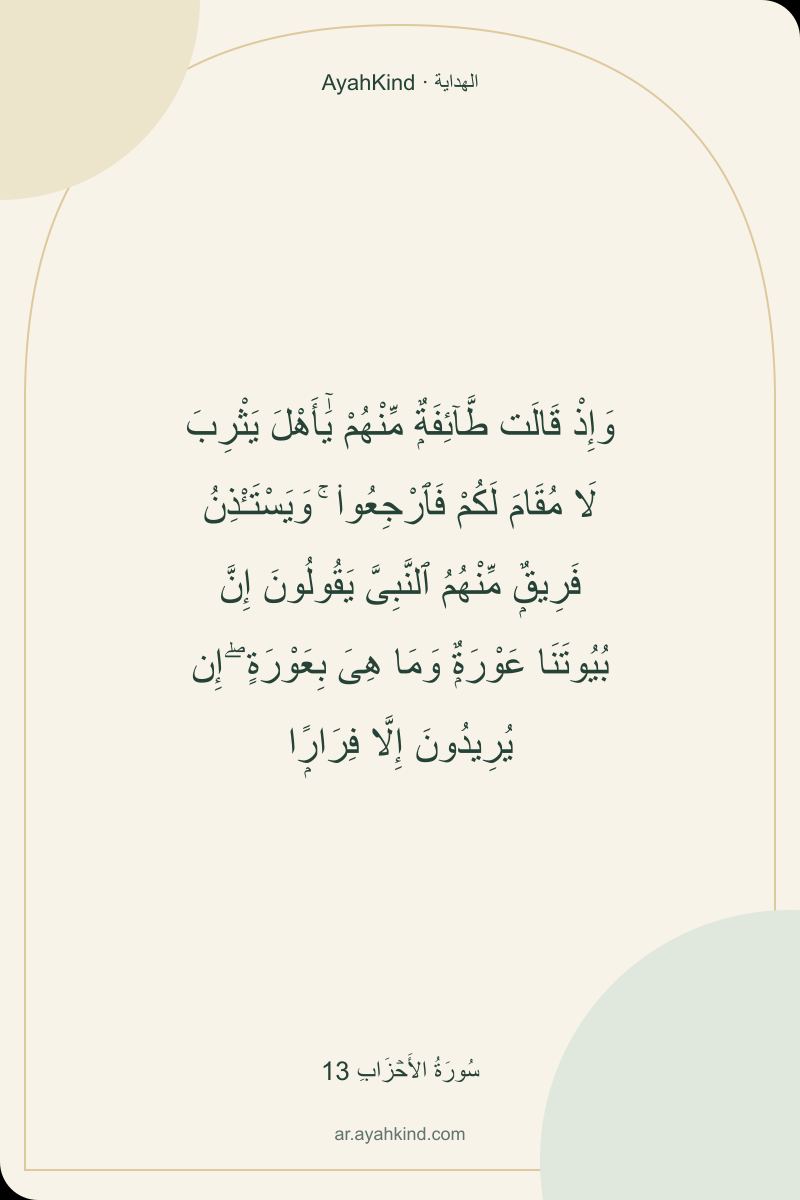 AyahKind · الهداية
وَإِذْ قَالَت طَّآئِفَةٌۭ مِّنْهُمْ يَٰٓأَهْلَ يَثْرِبَ
لَا مُقَامَ لَكُمْ فَٱرْجِعُوا۟ ۚ وَيَسْتَـْٔذِنُ
فَرِيقٌۭ مِّنْهُمُ ٱلنَّبِىَّ يَقُولُونَ إِنَّ
بُيُوتَنَا عَوْرَةٌۭ وَمَا هِىَ بِعَوْرَةٍ ۖ إِن
يُرِيدُونَ إِلَّا فِرَارًۭا
سُورَةُ الأَحۡزَابِ 13
ar.ayahkind.com